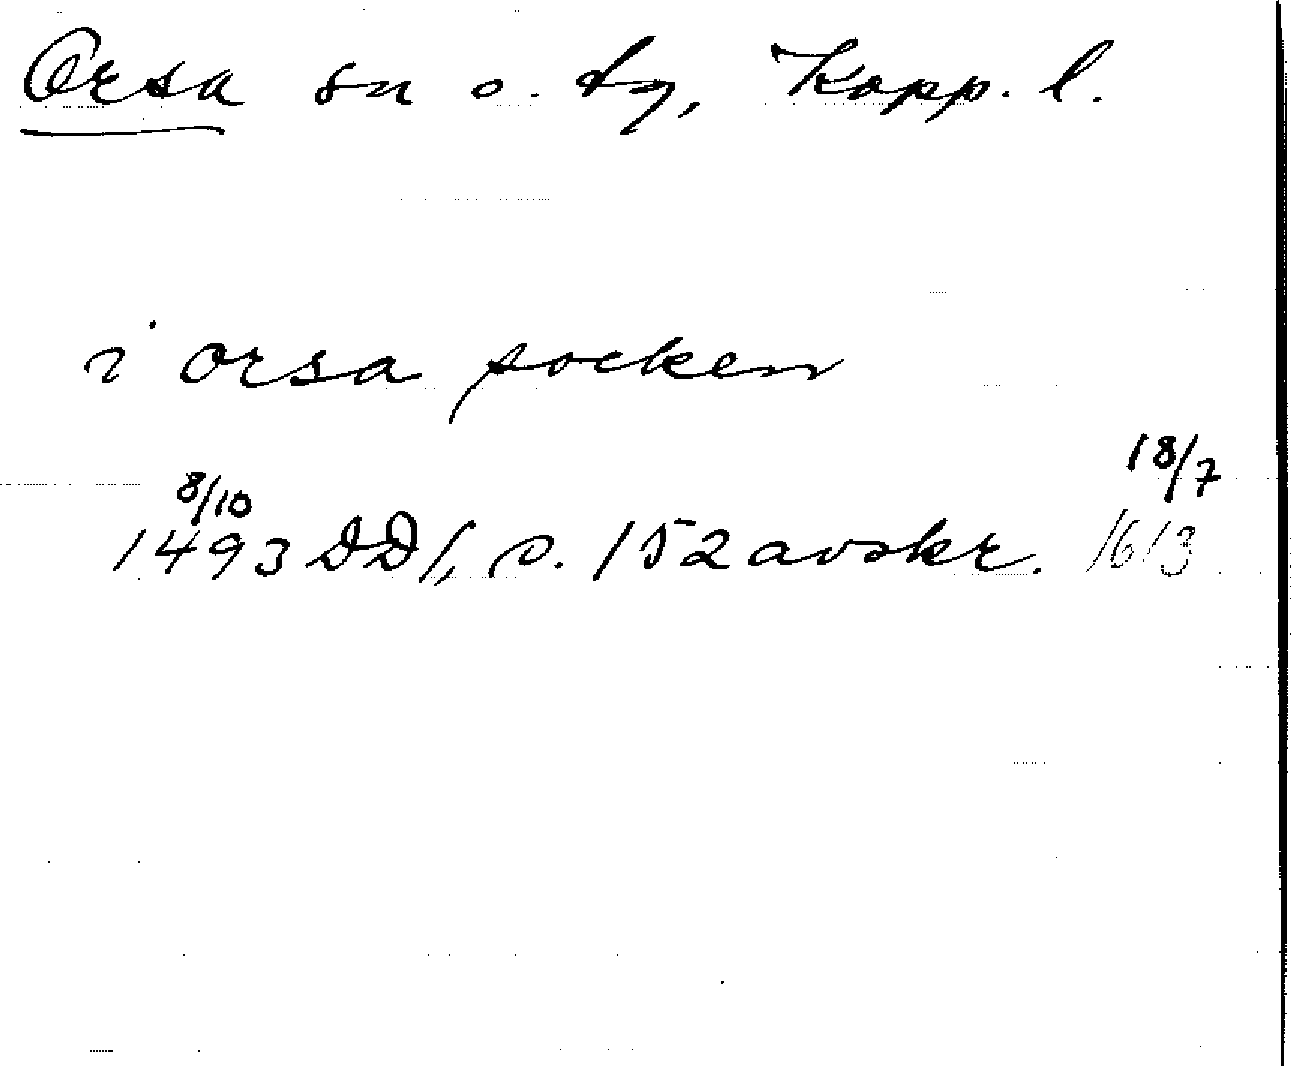 Orsa sn o. tg, Kopp. l.
i orsa socken
18/7
8/10
1493 DD 1, s. 152 avskr. 1613